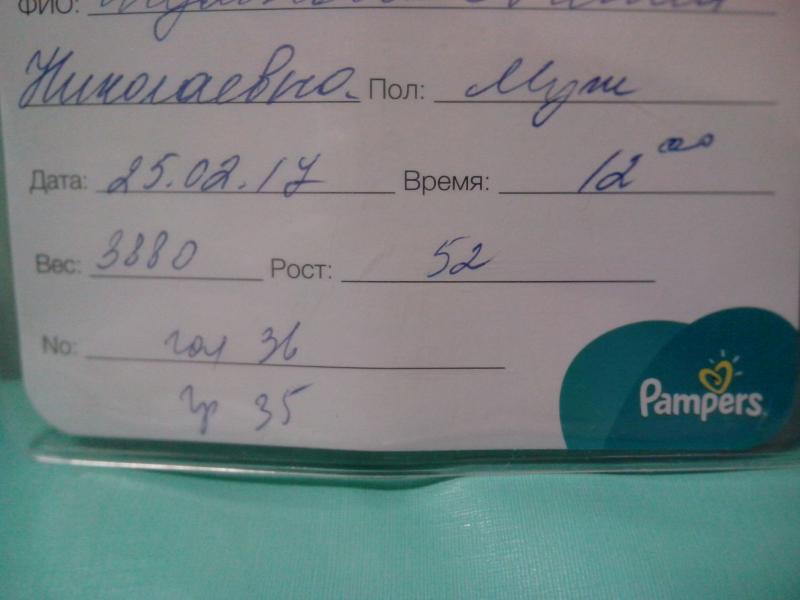 ФИО:
Николаевна. Пол: Муж
Дата: 25.02.17 Время: 12 00
Вес: 3880 Рост: 52
No: гол 36
гр 35
Pampers